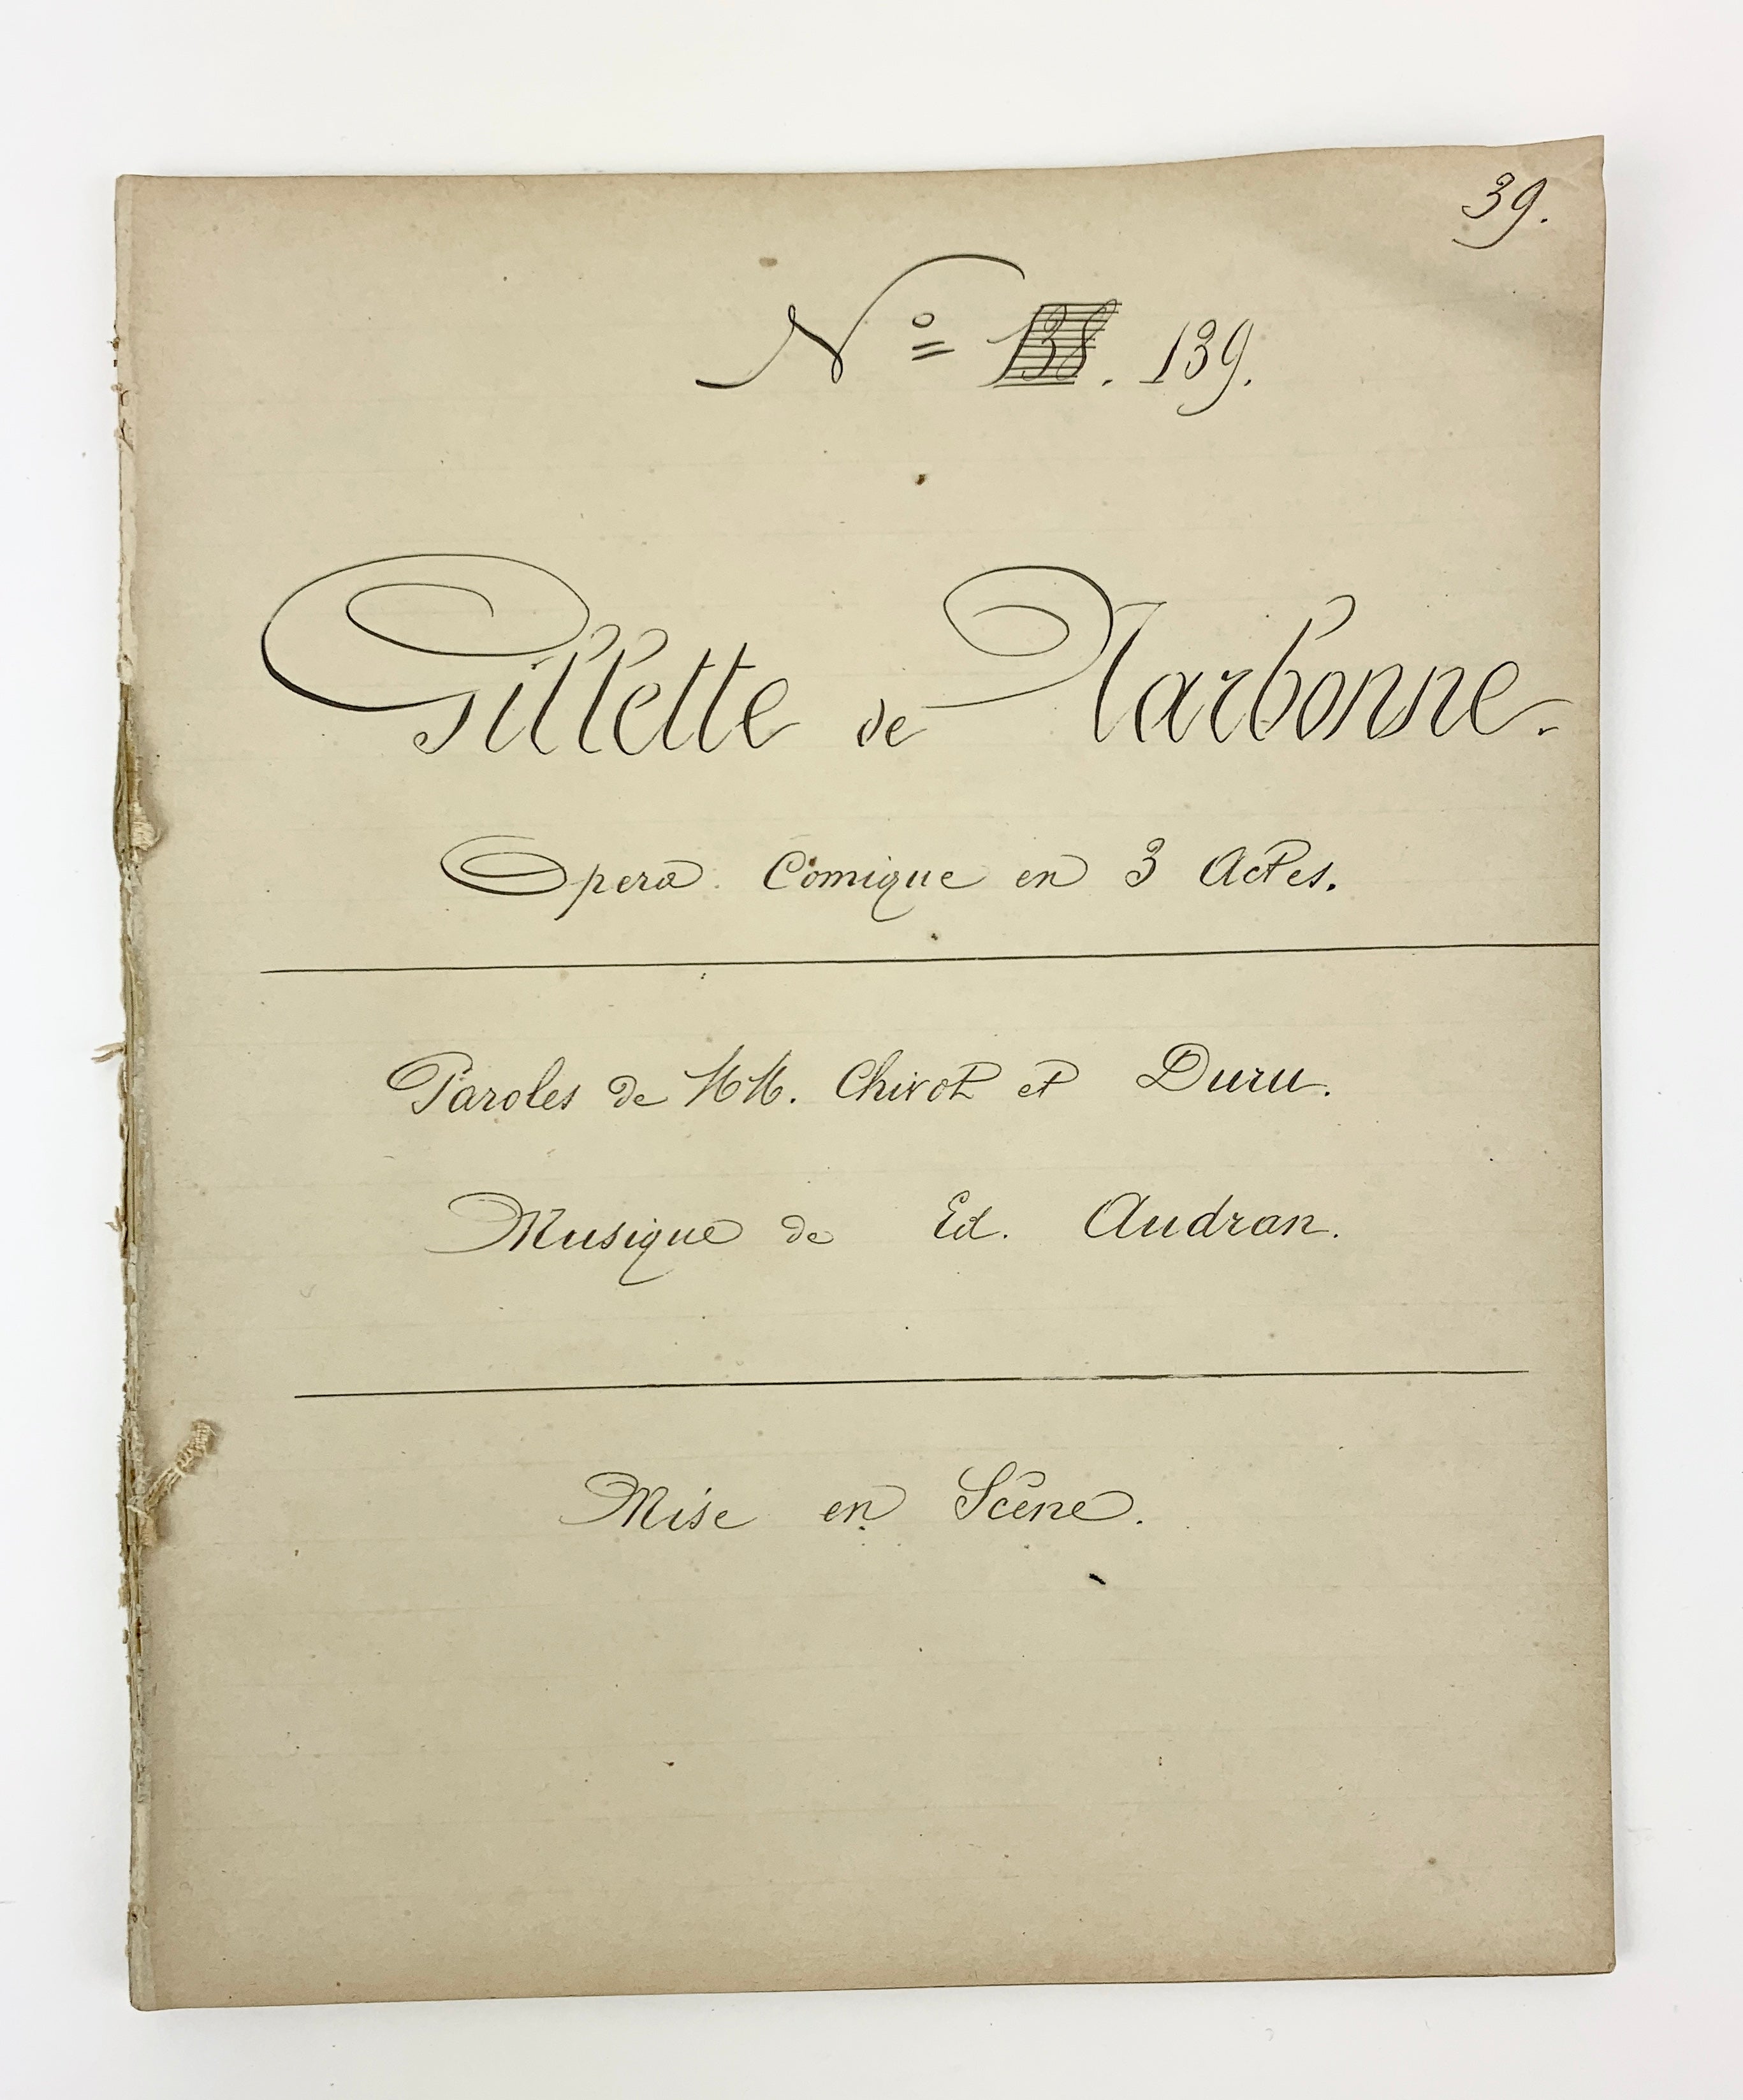 39.
Nº 138. 139.
Gillette de Narbonne.
Opera Comique en 3 Actes.
Paroles de MM. Chivot et Duru.
Musique de Ed. Audran.
Mise en Scène.